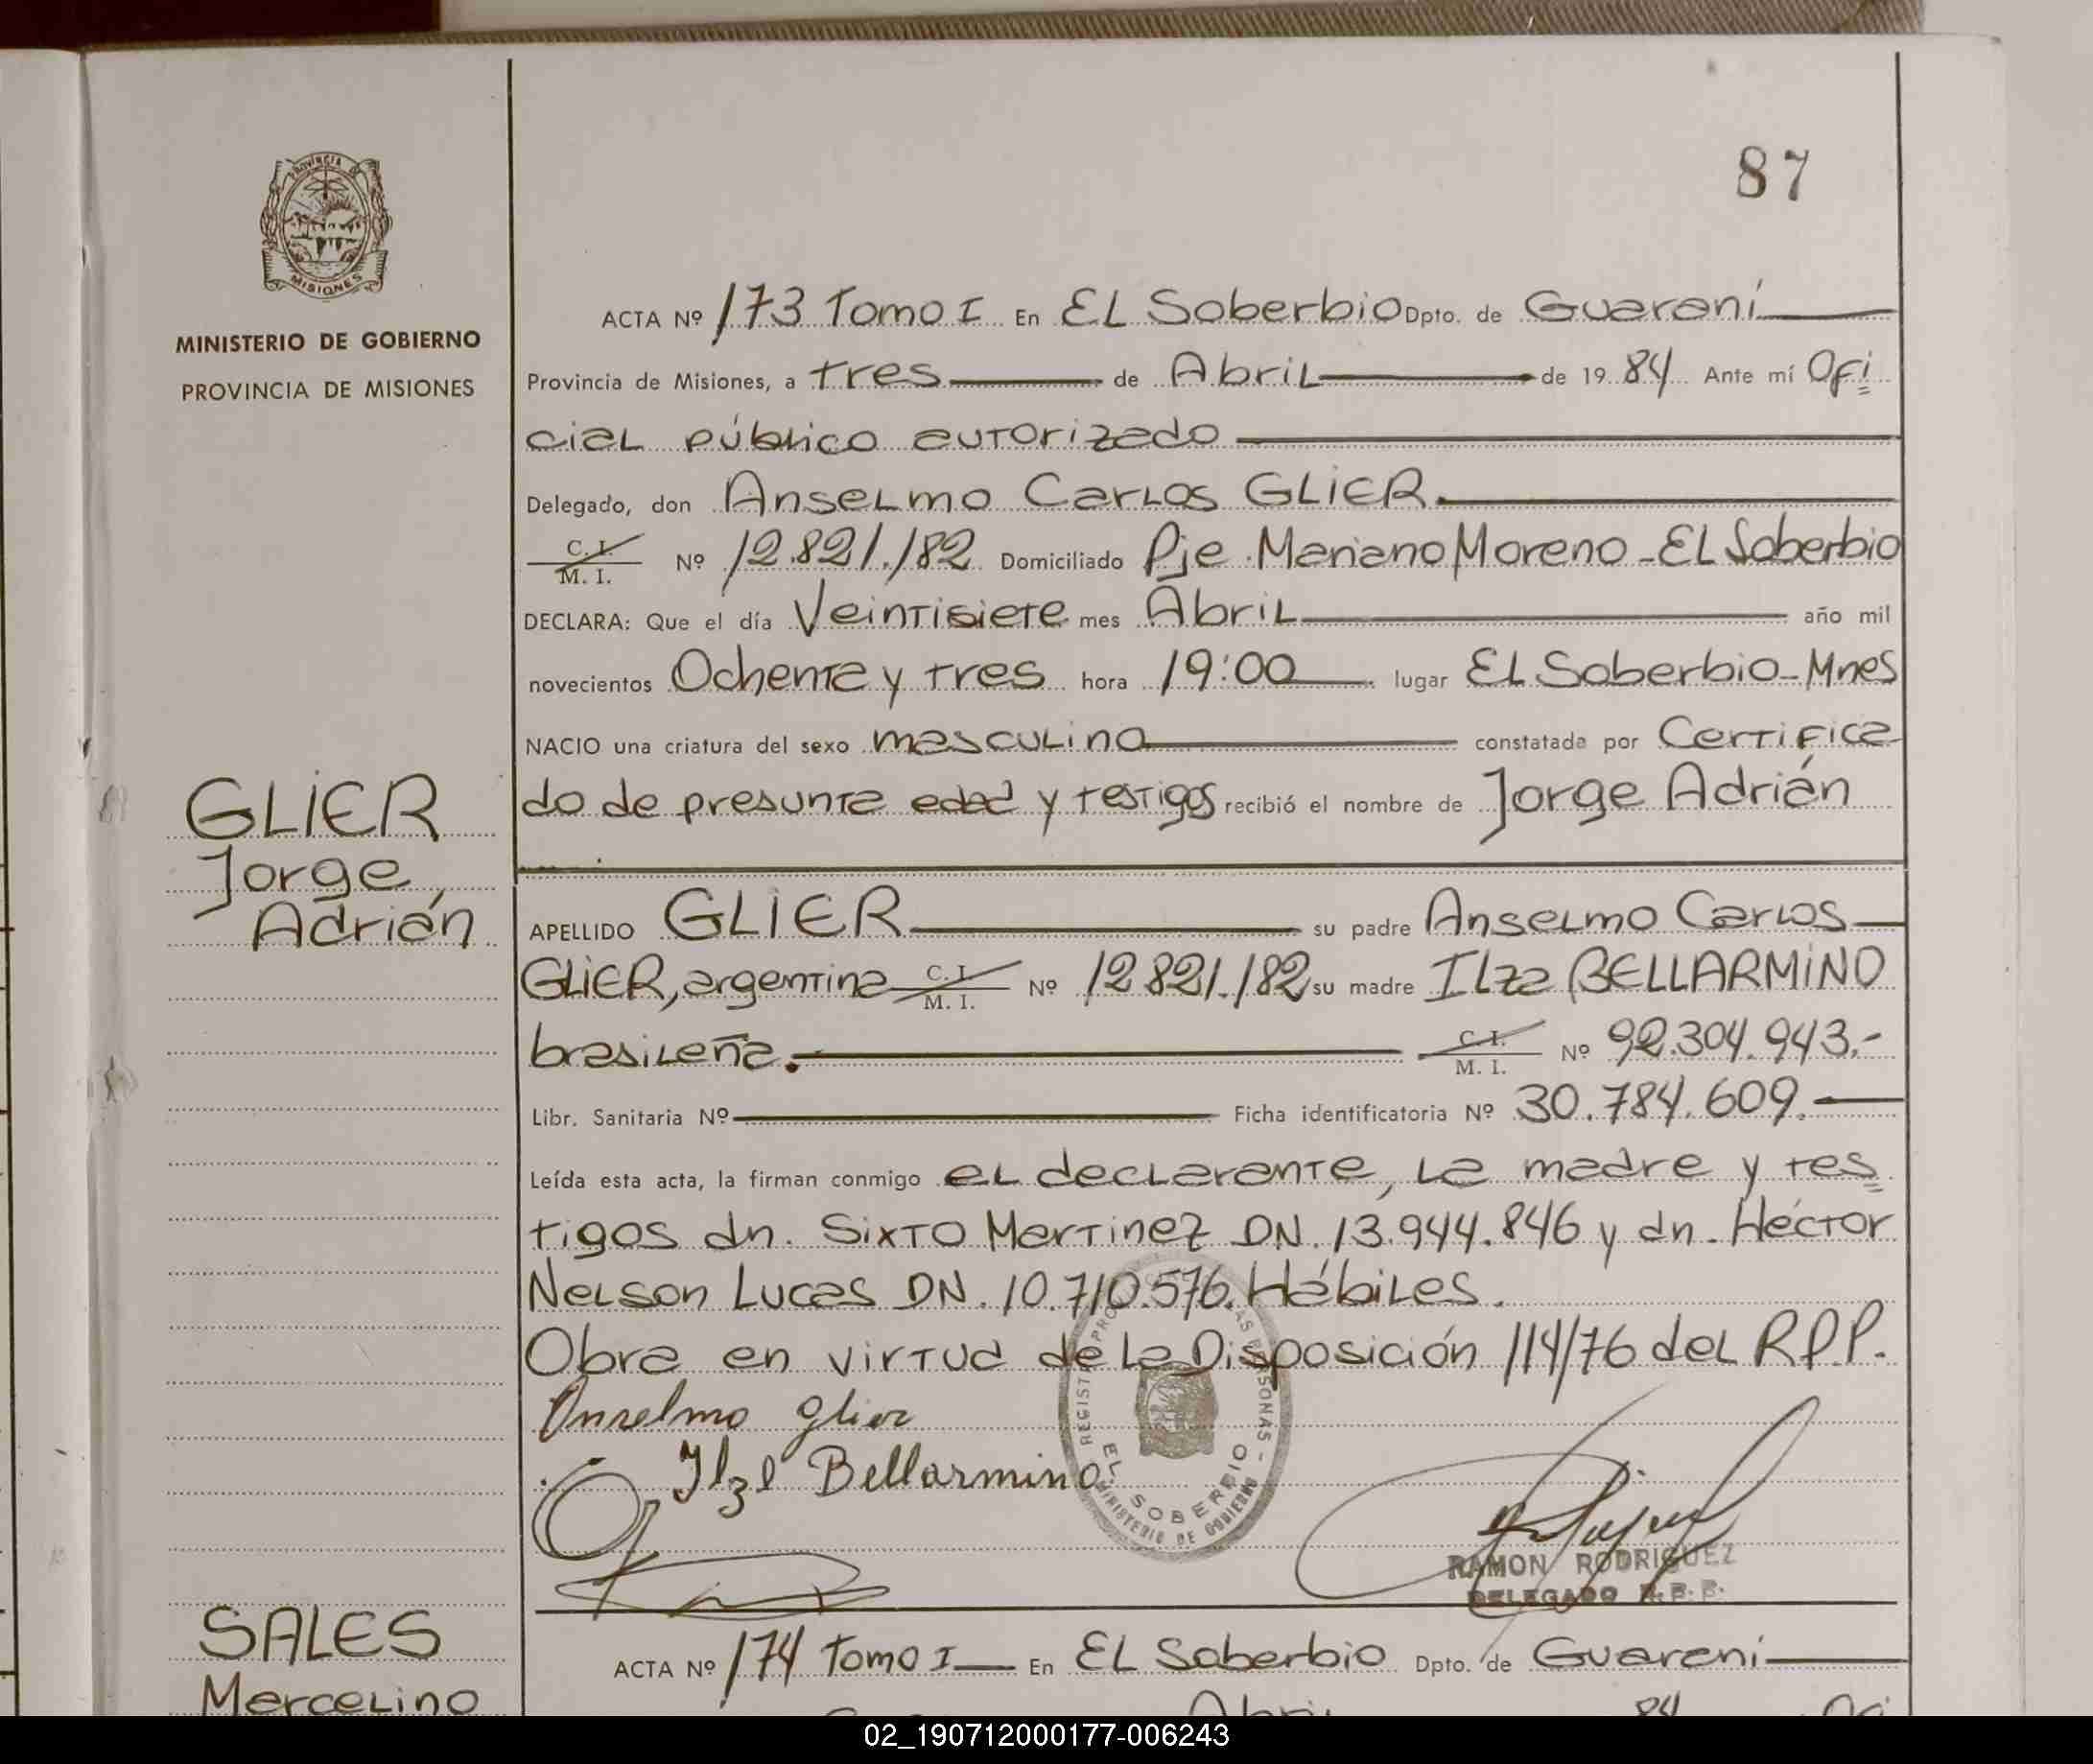 87
PROVINCIA DE
MISIONES
MINISTERIO DE GOBIERNO
PROVINCIA DE MISIONES
GLIER
Jorge
Adrián
ACTA Nº 173 Tomo I En EL Soberbio Dpto. de Guaraní
Provincia de Misiones, a tres de Abril de 19 84 Ante mí Ofi
cial público autorizado
Delegado, don Anselmo Carlos GLIER
C. I.
M. I. Nº 12.821.182 Domiciliado Pje Mariano Moreno - EL Soberbio
DECLARA: Que el día Veintisiete mes Abril año mil
novecientos Ochenta y tres hora 19:00 lugar EL Soberbio - Mnes
NACIO una criatura del sexo masculino constatada por Certifica
do de presunta edad y testigos recibió el nombre de Jorge Adrián
APELLIDO GLIER su padre Anselmo Carlos
GLIER, argentino C. I. M. I. Nº 12.821.182 su madre Ilza BELLARMINO
brasileña. C. I. M. I. Nº 92.304.943.-
Libr. Sanitaria Nº Ficha identificatoria Nº 30.784.609.
Leída esta acta, la firman conmigo el declarante, la madre y tes
tigos dn. Sixto Martinez DN. 13.944.846 y dn. Héctor
Nelson Lucas DN. 10.710.576. Hábiles.
Obra en virtud de la Disposición 114/76 del R.P.P.
Anselmo Glier
Ilza Bellarmino
EL SOBERBIO
MINISTERIO DE GOBIERNO
RAMON RODRIGUEZ
DELEGADO R.P.P.
SALES
Marcelino
ACTA Nº 174 Tomo I En EL Soberbio Dpto. de Guaraní
Abril 84 Ofi
02_190712000177-006243